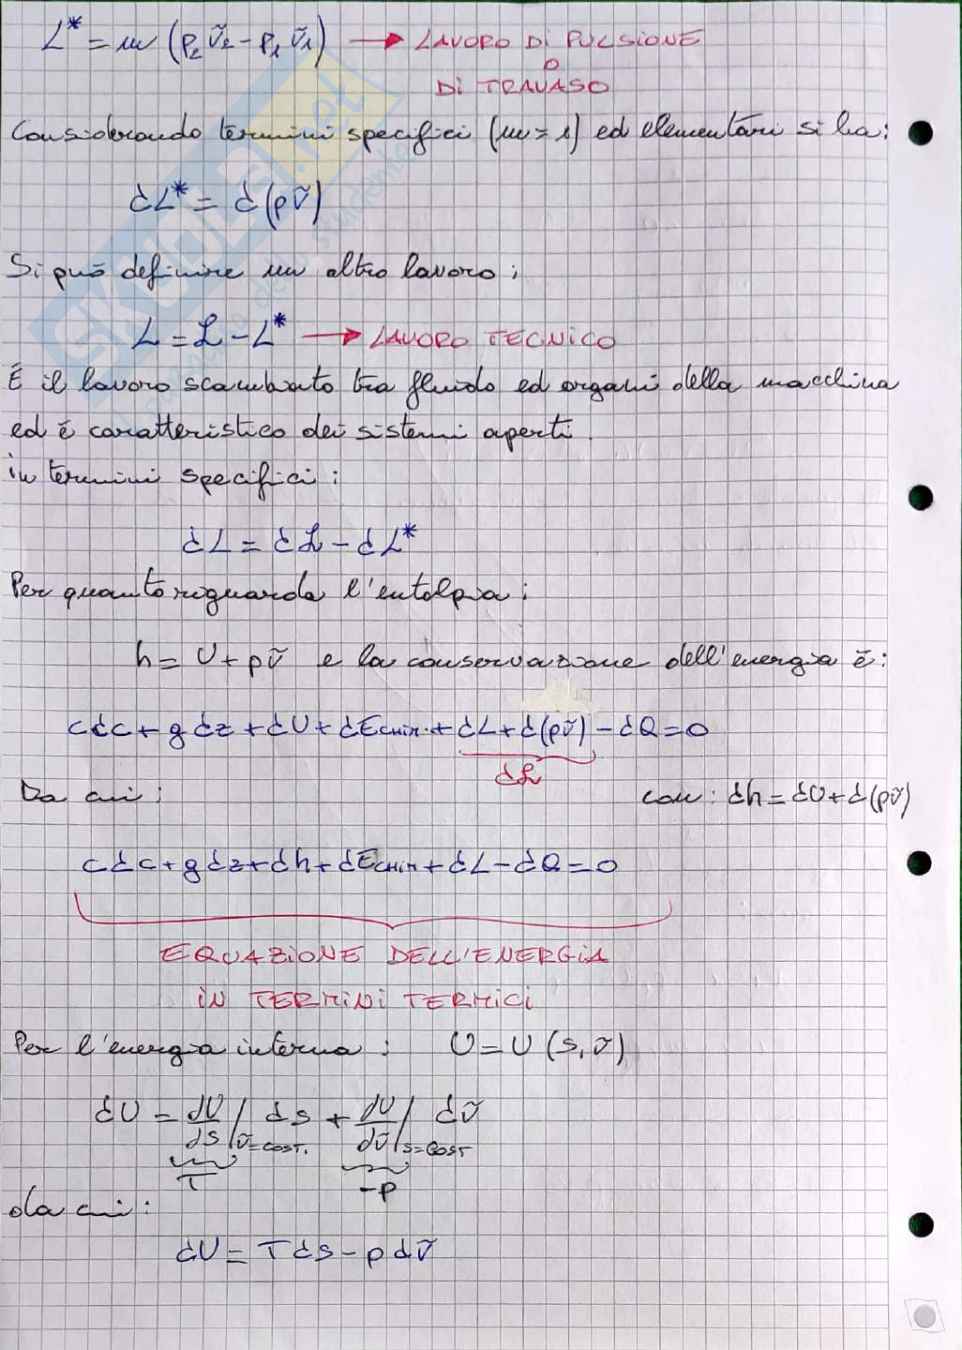 L* = m (p₂ṽ₂ - p₁ṽ₁) → LAVORO DI PULSIONE
O
DI TRAVASO
Considerando termini specifici (m=1) ed elementari si ha:
dL* = d(pṽ)
Si può definire un altro lavoro:
L = ℒ - L* → LAVORO TECNICO
È il lavoro scambiato tra fluido ed organi della macchina
ed è caratteristico dei sistemi aperti.
in termini specifici:
dL = dℒ - dL*
Per quanto riguarda l'entalpia:
h = U + pṽ e la conservazione dell'energia è:
cdc + gdz + dU + dEchin. + dL + d(pṽ) - dQ = 0
dℒ
Da cui: con: dh = dU + d(pṽ)
cdc + gdz + dh + dEchin + dL - dQ = 0
EQUAZIONE DELL'ENERGIA
IN TERMINI TERMICI
Per l'energia interna: U = U (s, ṽ)
dU = dU/ds |ṽ=cost. ds + dU/dṽ |s=cost dṽ
T -p
da cui:
dU = Tds - pdṽ
SKUOLA.net